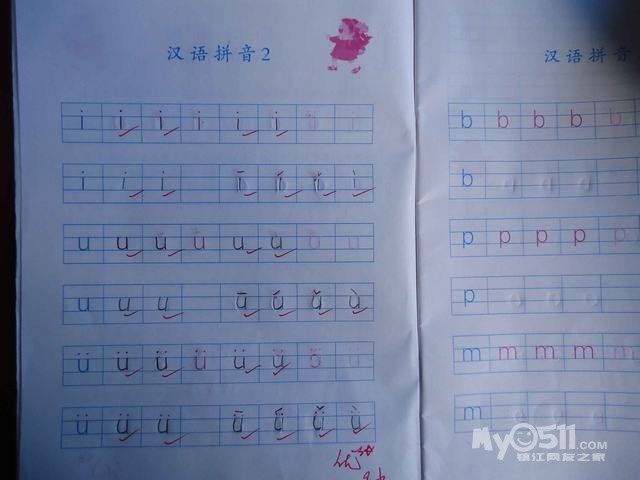 汉语拼音2
i i i i i i
i i i ī í ǐ ì
u u u u u u
u u u ū ú ǔ ù
ü ü ü ü ü ü
ü ü ü ǖ ǘ ǚ ǜ
汉语拼音
b b b b b
b
p p p p p
p
m m m m m
m
My0511.COM
镇江网友之家